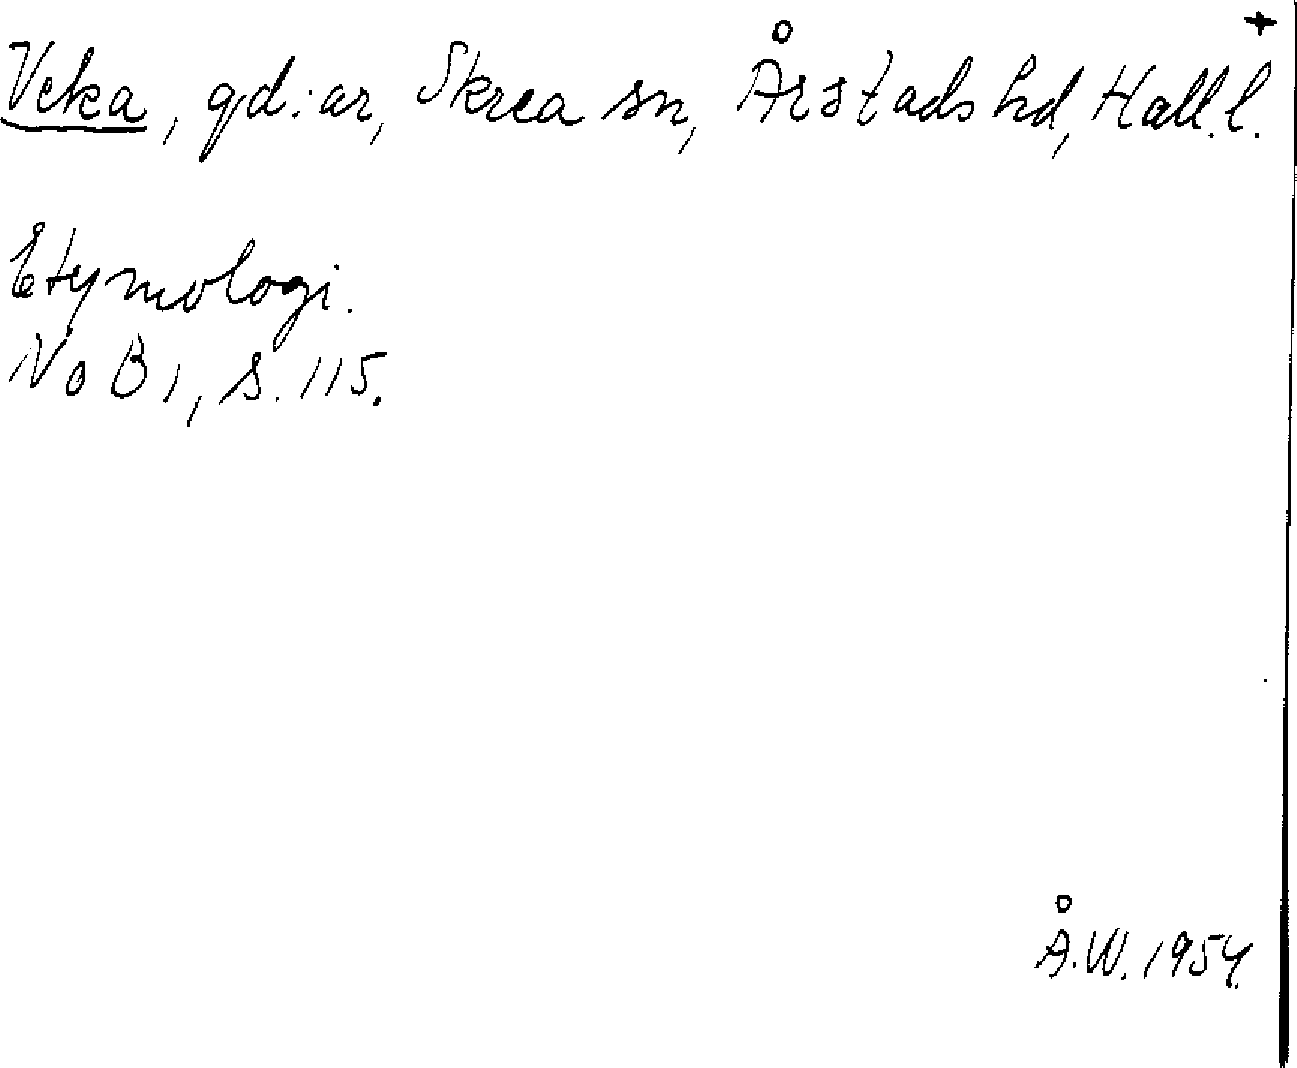 +
Veka, gd:ar, Skrea sn, Årstads hd, Hall. l.
Etymologi.
NoB 1, s. 115.
Å.W. 1954.